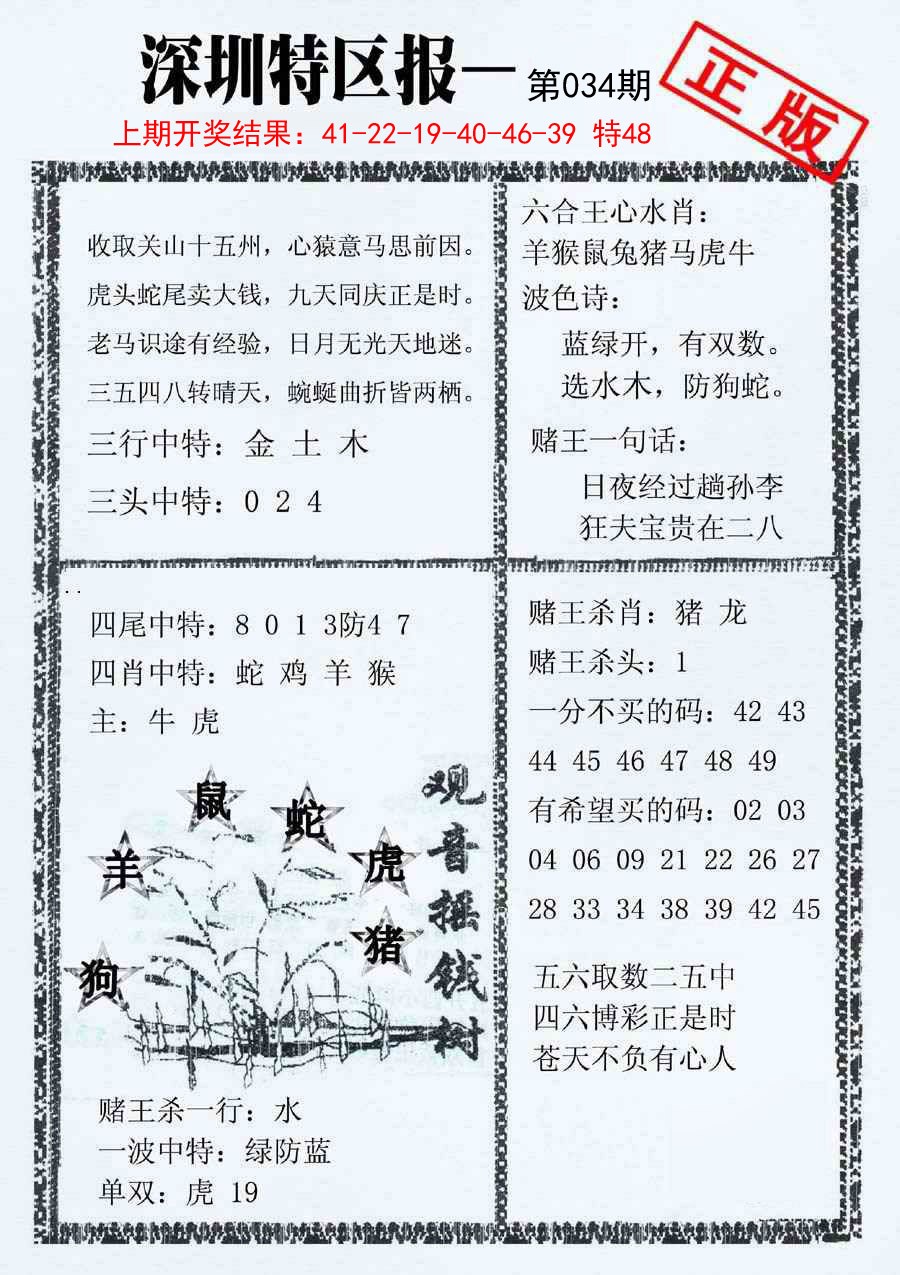 深圳特区报一 第034期
正版
上期开奖结果：41-22-19-40-46-39 特48
收取关山十五州，心猿意马思前因。
虎头蛇尾卖大钱，九天同庆正是时。
老马识途有经验，日月无光天地迷。
三五四八转晴天，蜿蜒曲折皆两栖。
三行中特：金 土 木
三头中特：0 2 4
六合王心水肖：
羊猴鼠兔猪马虎牛
波色诗：
蓝绿开，有双数。
选水木，防狗蛇。
赌王一句话：
日夜经过趟孙李
狂夫宝贵在二八
四尾中特：8 0 1 3防4 7
四肖中特：蛇 鸡 羊 猴
主：牛 虎
鼠
蛇
羊
虎
猪
狗
观音摇钱树
赌王杀一行：水
一波中特：绿防蓝
单双：虎 19
赌王杀肖：猪 龙
赌王杀头：1
一分不买的码：42 43
44 45 46 47 48 49
有希望买的码：02 03
04 06 09 21 22 26 27
28 33 34 38 39 42 45
五六取数二五中
四六博彩正是时
苍天不负有心人